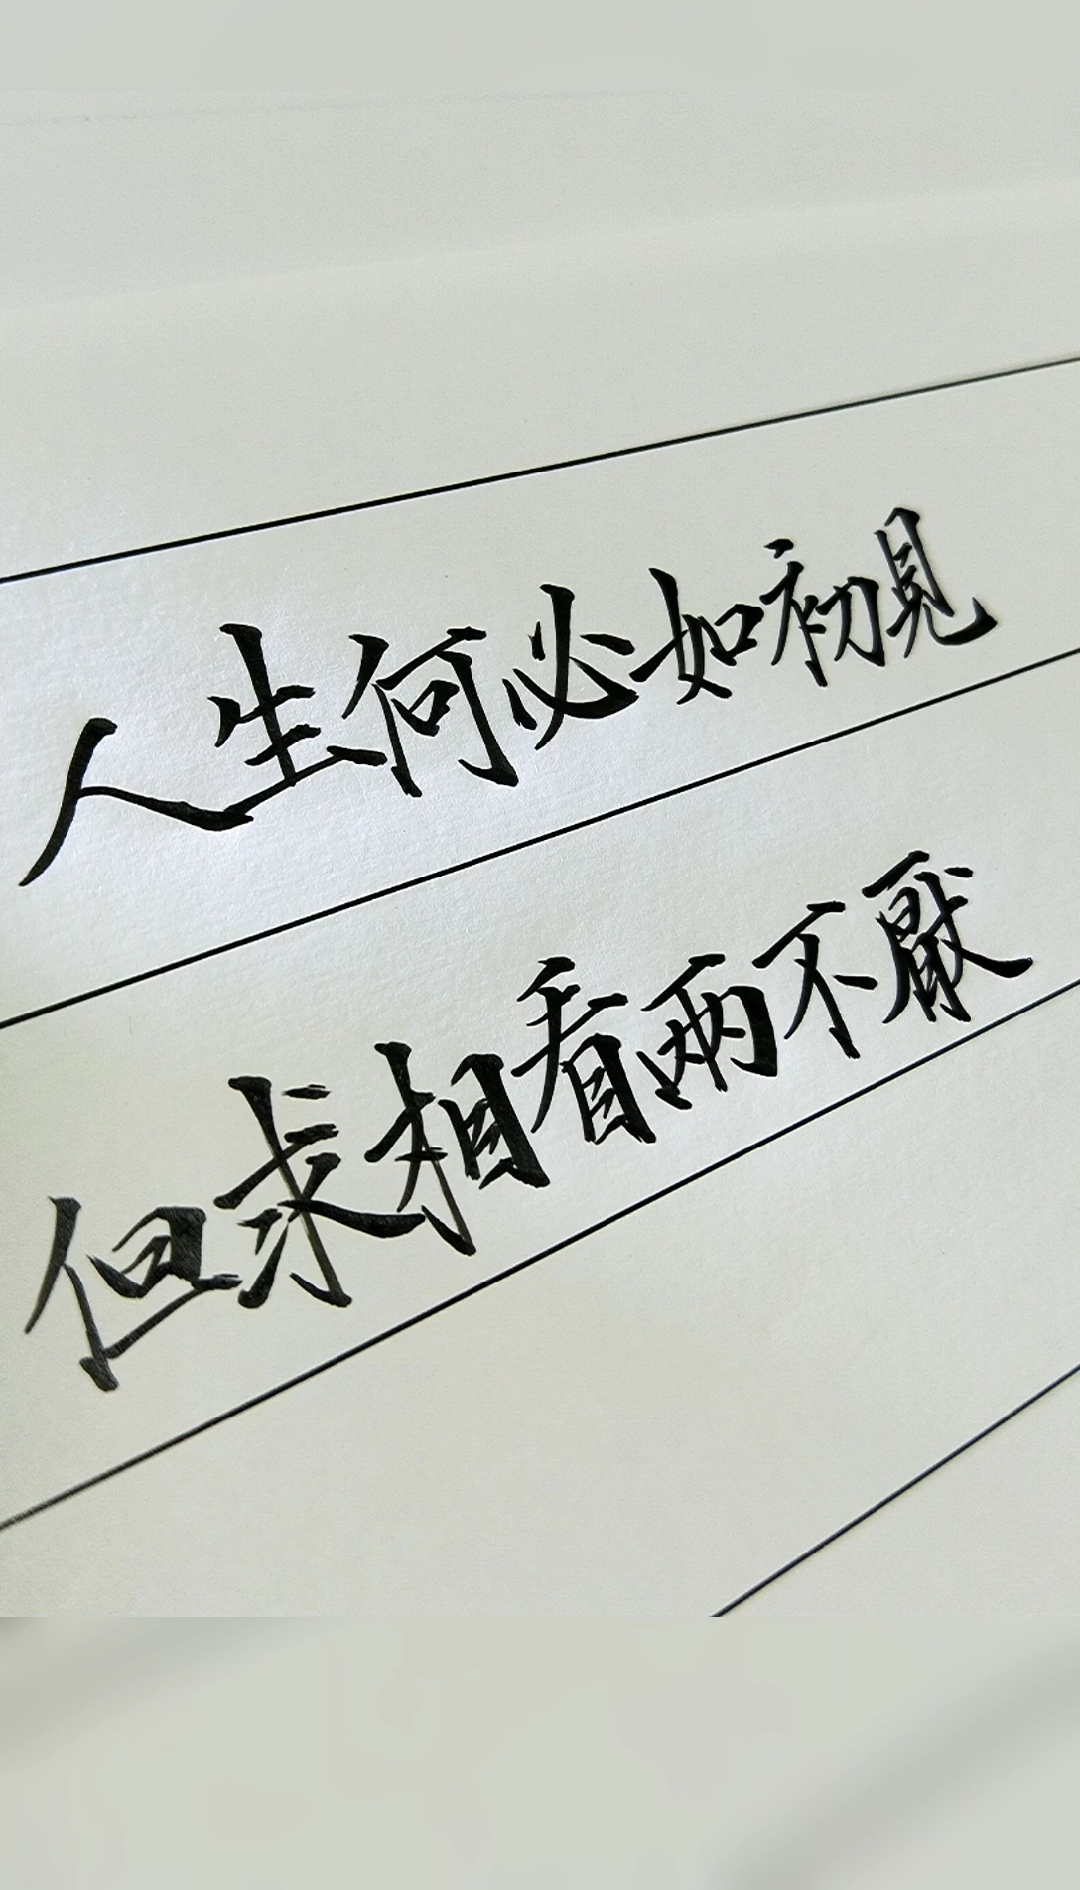 人生何必如初見
但求相看兩不厭